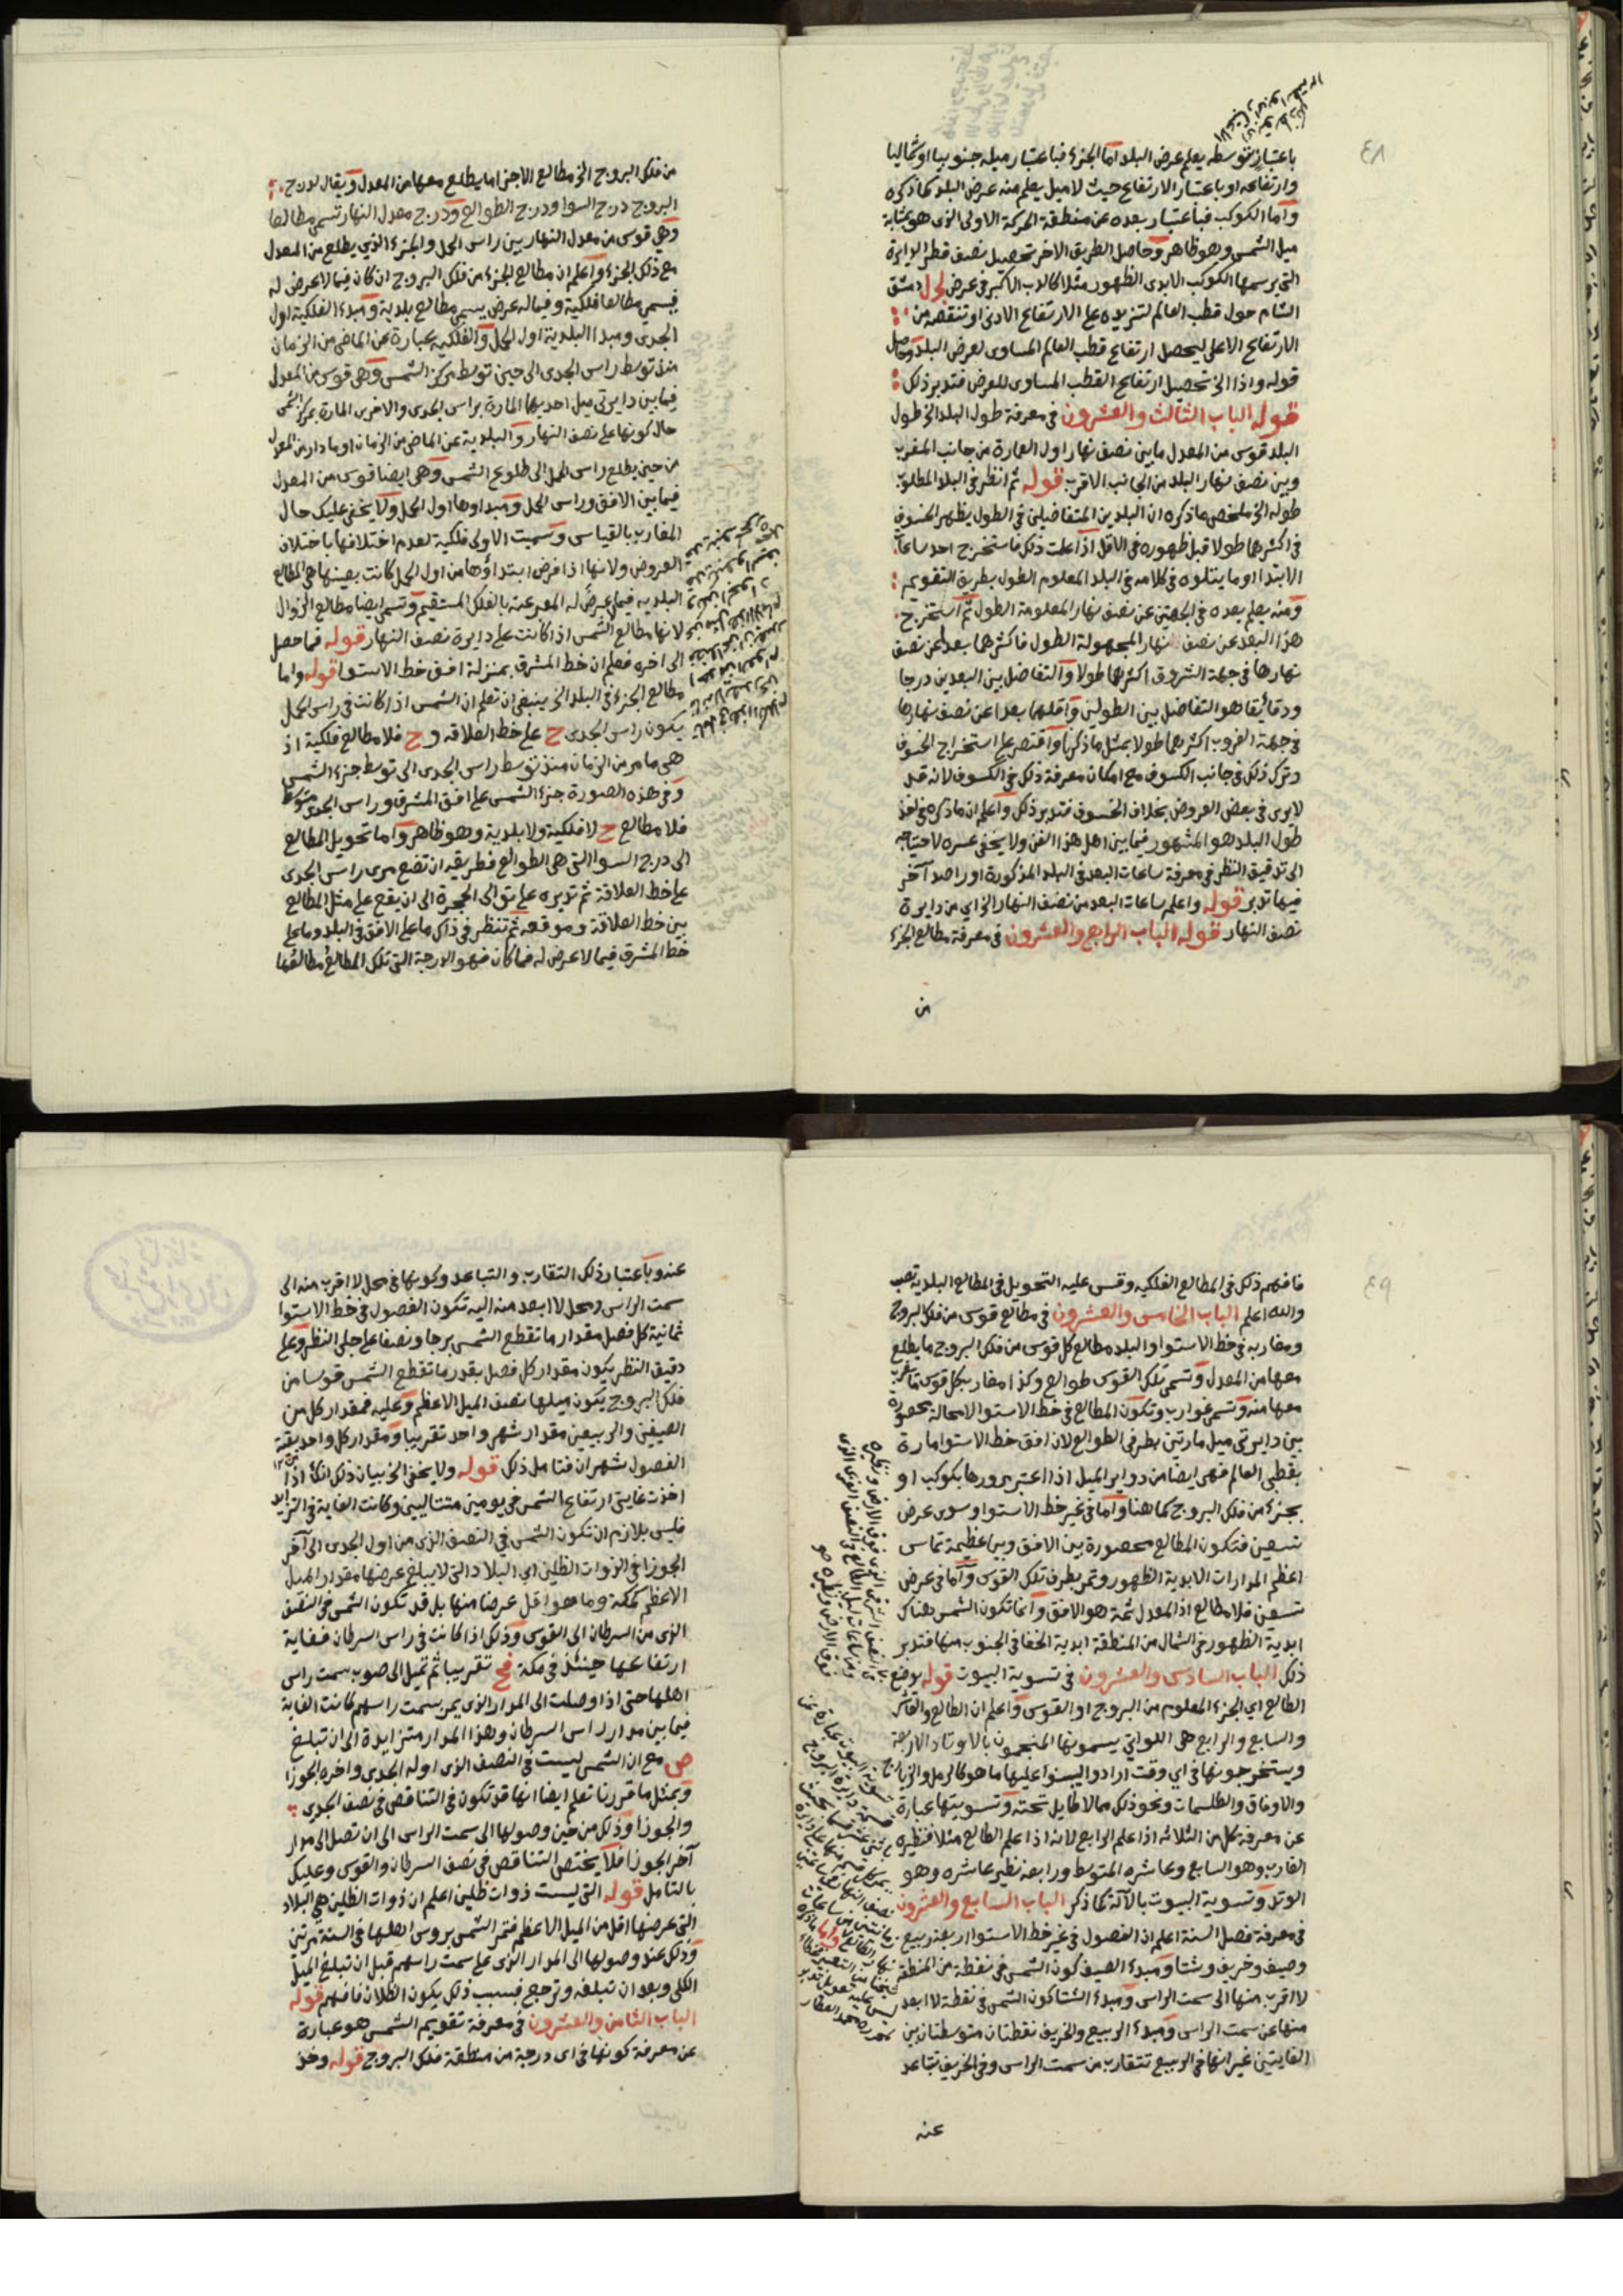 ٤٨
باعتبار توسطه يعلم عرض البلد اما الجزء فباعتبار ميله جنوبيا او شماليا
وارتفاعه او باعتبار الارتفاع حيث لا ميل يعلم منه عرض البلد كما ذكره
واما الكوكب فباعتبار بعده عن منطقة الحركة الاولى الذى هو بمثابة
ميل الشمس وهو ظاهر وحاصل الطريق الاخر تحصيل نصف قطر الدايرة
التى يرسمها الكوكب الابدى الظهور مثلا كالدب الاكبر فى عرض لجل دمشق
الشام حول قطب العالم لتزيده على الارتفاع الادنى او تنقصه من
الارتفاع الاعلى ليحصل ارتفاع قطب العالم المساوى لعرض البلد وحاصل
قوله واذا الخ تحصيل ارتفاع القطب المساوى للعرض فتدبر ذلك
قوله الباب الثالث والعشرون فى معرفة طول البلد الخ طول
البلد قوس من المعدل ما بين نصف نهار اول العمارة من جانب المغرب
وبين نصف نهار البلد من الجانب الاقرب قوله ثم انظر فى البلد المطلوب
طوله الخ ملخص ما ذكره ان البلدين المتفاضلين فى الطول يظهر الخسوف
فى اكثرهما طولا قبل ظهوره فى الاقل اذا علمت ذلك فاستخرج احد ساعات
الابتدا او ما يتلوه فى كلامه فى البلد المعلوم الطول بطريق التقويم
ومنه يعلم بعده فى الجهتين عن نصف نهار المعلومة الطول ثم استخرج
هذا البعد عن نصف نهار المجهولة الطول فاكثرهما بعدا عن نصف
نهارها فى جهة الشروق اكثرهما طولا والتفاضل بين البعدين درجا
ودقائقا هو التفاضل بين الطولين واقلهما بعدا عن نصف نهارها
فى جهة الغروب اكثرهما طولا بمثل ما ذكرنا واقتصر على استخراج الخسوف
وترك ذلك فى جانب الكسوف مع امكان معرفة ذلك فى الكسوف لانه قد
لا يرى فى بعض العروض بخلاف الخسوف فتدبر ذلك واعلم ان ما ذكره فى اخذ
طول البلد هو المشهور فيما بين اهل هذا الفن ولا يخفى عسره لاحتياجه
الى تدقيق النظر فى معرفة ساعات البعد فى البلد المذكورة او راصد آخر
فيها تدبر قوله واعلم ساعات البعد من نصف النهار الخ اي من دايرة
نصف النهار قوله الباب الرابع والعشرون فى معرفة مطالع الجزء
من
من فلك البروج الخ مطالع الاجزا ما يطلع معها من المعدل ويقال لدرج
البروج درج السوا ودرج الطوالع ودرج معدل النهار تسمى مطالعا
وهي قوس من معدل النهار بين راس الحمل والجزء الذي يطلع من المعدل
مع ذلك الجزء واعلم ان مطالع الجزء من فلك البروج ان كان فيما لا عرض له
فيسمى مطالعا فلكية وفيما له عرض يسمى مطالع بلدية ومبدء الفلكية اول
الجدى ومبدا البلدية اول الحمل والفلكية عبارة عن الماضى من الزمان
منذ توسط راس الجدى الى حين توسط مركز الشمس وهى قوس من المعدل
فيما بين دايرتى ميل احديهما المارة براس الجدى والاخرى المارة بمركز الشمس
حال كونها على نصف النهار والبلدية عن الماضى من الزمان او ما دار من المعدل
من حين يطلع راس الحمل الى طلوع الشمس وهى ايضا قوس من المعدل
فيما بين الافق وراس الحمل ومبداوها اول الحمل ولا يخفى عليك حال
المغارب بالقياس وسميت الاولى فلكية لعدم اختلافها باختلاف
العروض ولانها اذا فرض ابتداؤها من اول الحمل كانت بعينها هى المطالع
البلديه فيما لا عرض له المعبر عنه بالفلك المستقيم وتسمى ايضا مطالع الزوال
لانها مطالع الشمس اذا كانت على دايرة نصف النهار قوله فما حصل
الى اخره فعلم ان خط المشرق بمنزلة افق خط الاستوا قوله واما
مطالع الجزء فى البلد الخ ينبغى ان تعلم ان الشمس اذا كانت فى راس الحمل
يكون راس الجدى ح على خط العلاقه و ح فلا مطالع فلكية اذ
هى ما مر من الزمان منذ توسط راس الجدى الى توسط جزء الشمس
وفى هذه الصورة جزء الشمس على افق المشرق وراس الجدى متوسط
فلا مطالع ح لا فلكية ولا بلدية وهو ظاهر واما تحويل المطالع
الى درج السوا التى هى الطوالع فطريقه ان تضع مرى راس الجدى
على خط العلاقة ثم تديره على توالى الحجرة الى ان يقع على مثل المطالع
بين خط العلاقة وموقعه ثم تنظر فى ذاك ما على الافق فى البلد وما على
خط المشرق فيما لا عرض له فما كان فهو الدرجة التى تلك المطالع مطالعها
٤٩
فافهم ذلك فى المطالع الفلكيه وقس عليه التحويل فى المطالع البلدية تصب
والله اعلم الباب الخامس والعشرون فى مطالع قوس من فلك البروج
ومغاربه فى خط الاستوا والبلد مطالع كل قوس من فلك البروج ما يطلع
معها من المعدل وتسمى تلك القوس طوالع وكذا مغارب كل قوس ما غرب
معها منه وتسمى غوارب وتكون المطالع فى خط الاستوا لا محالة محصورة
بين دايرتى ميل مارتين بطرفى الطوالع لان افق خط الاستوا مارة
بقطبى العالم فهى ايضا من دواير الميل اذا اعتبر مرورها بكوكب او
بجزء من فلك البروج كما هنا واما فى غير خط الاستوا وسوى عرض
تسعين فتكون المطالع محصورة بين الافق وبين عظيمة تماس
اعظم المدارات الابدية الظهور وتمر بطرف تلك القوس واما فى عرض
تسعين فلا مطالع اذ المعدل ثمة هو الافق وانما تكون الشمس هناك
ابدية الظهور فى الشمال من المنطقة ابدية الخفا فى الجنوب منها فتدبر
ذلك الباب السادس والعشرون فى تسوية البيوت قوله يوضع
الطالع اي الجزء المعلوم من البروج او القوس واعلم ان الطالع والعاشر
والسابع والرابع هى اللواتي يسمونها المنجمون بالاوتاد الاربعة
ويستخرجونها فى اي وقت ارادوا ليبنوا عليها ما هو كالرمل والزيارج
والاوفاق والطلسمات ونحو ذلك مما لا طايل تحته وتسويتها عبارة
عن معرفة كل من الثلاثه اذا علم الرابع لانه اذا علم الطالع مثلا فنظيره
الغارب وهو السابع وعاشره المتوسط ورابعه نظير عاشره وهو
الوتد وتسوية البيوت بالآلة كما ذكر الباب السابع والعشرون
فى معرفة فصل السنة اعلم ان الفصول فى غير خط الاستوا اربعة ربيع
وصيف وخريف وشتا ومبدء الصيف كون الشمس فى نقطة من المنطقة
لا اقرب منها الى سمت الراس ومبدء الشتا كون الشمس فى نقطة لا ابعد
منها عن سمت الراس ومبدء الربيع والخريف نقطتان متوسطتان بين
الغايتين غير انها فى الربيع تتقارب من سمت الراس وفى الخريف تتباعد
عنه
عنه وباعتبار ذلك التقارب والتباعد وكونها فى محل لا اقرب منه الى
سمت الراس ومحل لا ابعد منه اليه تكون الفصول فى خط الاستوا
ثمانية كل فصل مقدار ما تقطع الشمس برجا ونصفا على جلى النظر وعلى
دقيق النظر يكون مقدار كل فصل بقدر ما تقطع الشمس قوسا من
فلك البروج يكون ميلها نصف الميل الاعظم وعليه فمقدار كل من
الصيفين والربيعين مقدار شهر واحد تقريبا ومقدار كل واحد بقية
الفصول شهران فتامل ذلك قوله ولا يخفى الخ بيان ذلك انك اذا
اخذت غايتى ارتفاع الشمس فى يومين متتاليين وكانت الغاية فى التزايد
فليس بلازم ان تكون الشمس فى النصف الذى من اول الجدى الى آخر
الجوزا فى الذوات الظلين اي البلاد التى لا يبلغ عرضها مقدار الميل
الاعظم كمكة وما هو اقل عرضا منها بل قد تكون الشمس فى النصف
الذى من السرطان الى القوس وذلك اذا كانت فى راس السرطان فغاية
ارتفاعها حينئذ فى مكة فح تقريبا ثم تميل الى صوب سمت راس
اهلها حتى اذا وصلت الى المدار الذى يمر بسمت راسهم كانت الغاية
فيما بين مدار راس السرطان وهذا المدار متزايدة الى ان تبلغ
ص مع ان الشمس ليست فى النصف الذى اوله الجدى واخره الجوزا
وبمثل ما قررنا تعلم ايضا انها قد تكون فى التناقص فى نصف الجدى
والجوزا وذلك من حين وصولها الى سمت الراس الى ان تصل الى مدار
آخر الجوزا فلا يختص التناقص فى نصف السرطان والقوس وعليك
بالتامل قوله التى ليست ذوات ظلين اعلم ان ذوات الظلين هى البلاد
التى عرضها اقل من الميل الاعظم فتمر الشمس بروس اهلها فى السنة مرتين
وذلك عند وصولها الى المدار الذى على سمت راسهم قبل ان تبلغ الميل
الكلى وبعد ان تبلغه وترجع فبسبب ذلك يكون الظلان فافهم قوله
الباب الثامن والعشرون فى معرفة تقويم الشمس هو عبارة
عن معرفة كونها فى اى درجة من منطقة فلك البروج قوله وخذ